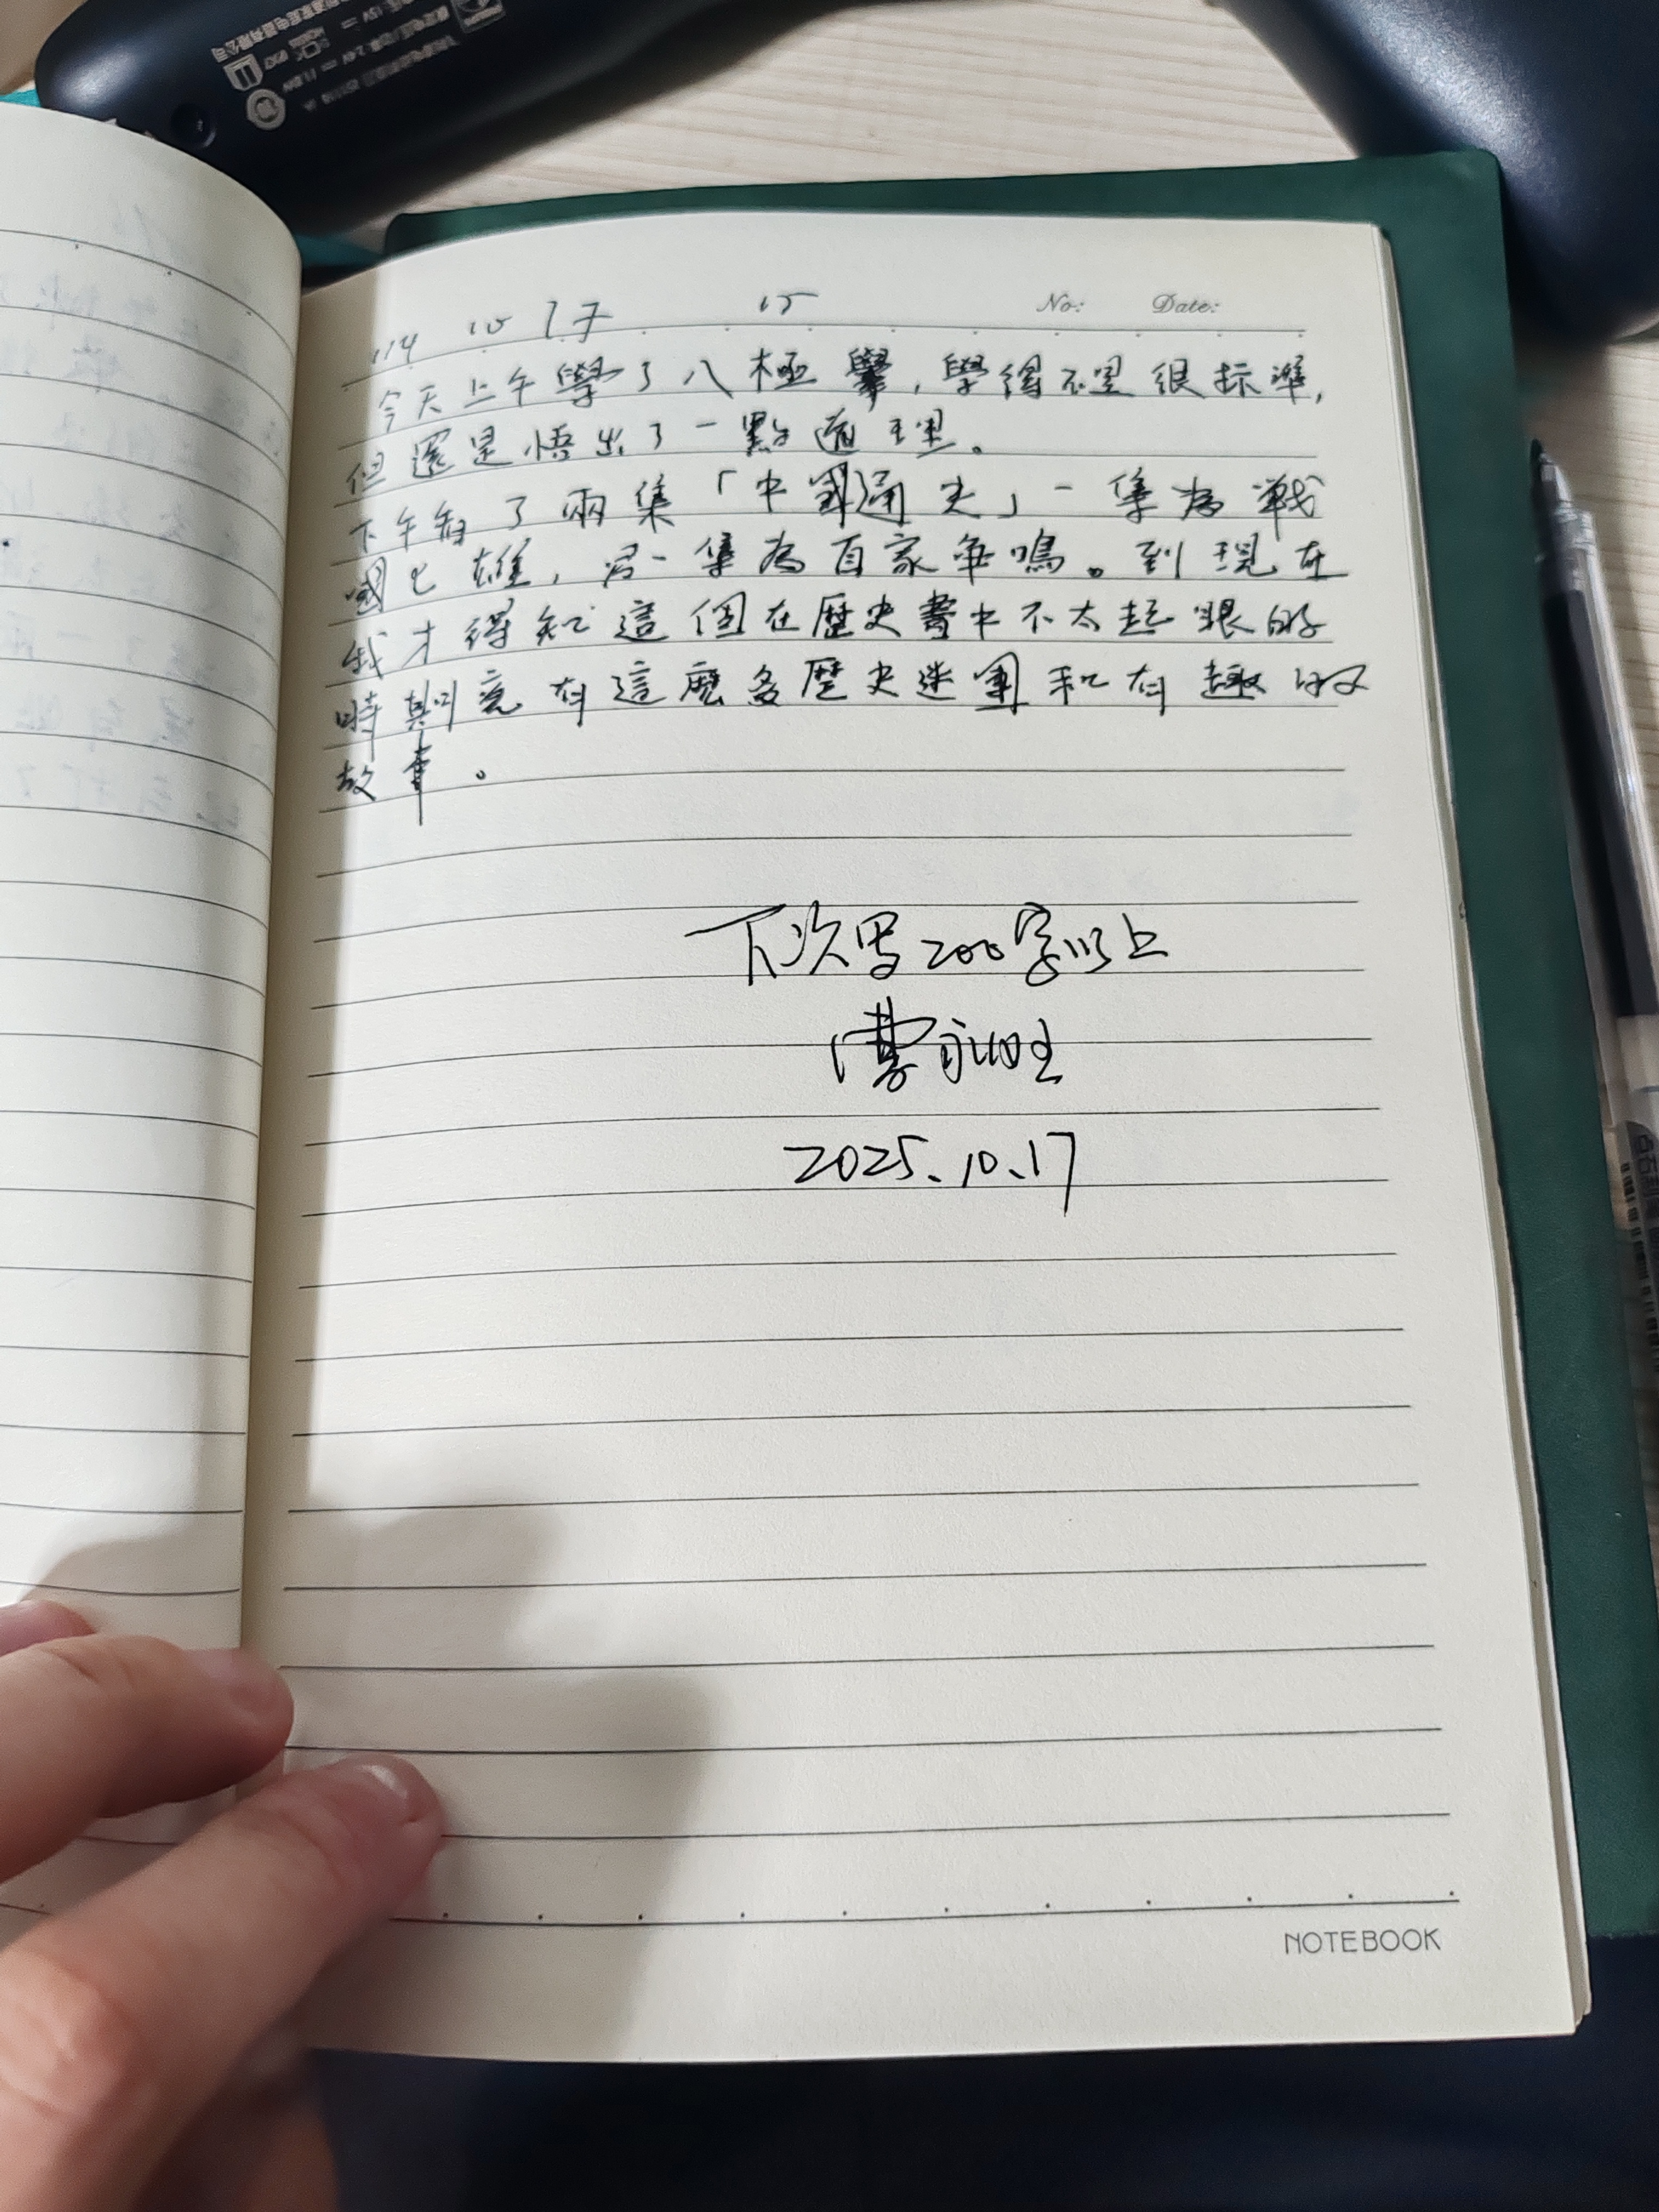 114 10 17 15
No: Date:
今天上午學了八極拳,學得不是很标準,
但還是悟出了一點道理。
下午看了兩集「中國通史」一集為戰
國七雄,另一集為百家爭鳴。到現在
我才得知這個在歷史書中不太起眼的
時期竟有這麼多歷史迷團和有趣的
故事。
下次写200字以上
2025.10.17
NOTEBOOK